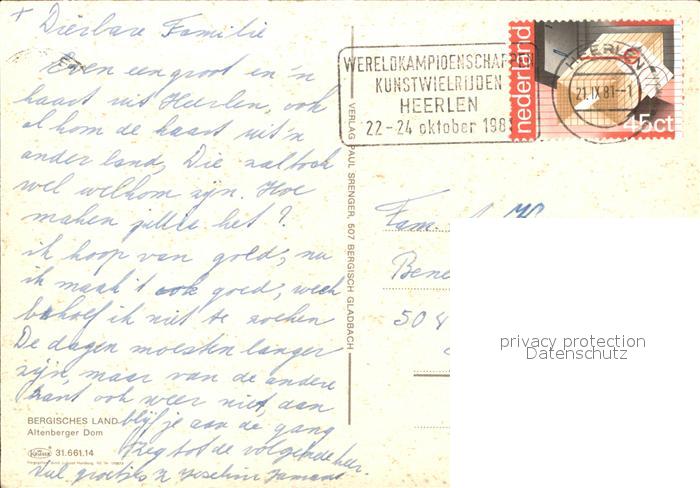 + Dierbare Familie
Even een groet in 'n
kaart uit Heerlen, ook
al kom de kaart uit 'n
ander land, Die zal toch
wel welkom zijn. Hoe
maken jullie het?
ik hoop van goed, nu
ik maak 't ook goed, werk
behoef ik niet te zoeken
De dagen moesten langer
zijn, maar van de andere
kant ook weer niet, dan
blijf je aan de gang
Zeg tot de volgende keer.
Vele groetjes
BERGISCHES LAND
Altenberger Dom
Krüger 31.661.14
VERLAG PAUL SRENGER, 507 BERGISCH GLADBACH
WERELDKAMPIOENSCHAPPEN
KUNSTWIELRIJDEN
HEERLEN
22-24 oktober 198
HEERLEN
21.IX 81.-1
nederland
45ct
Fam.
Bene
504
privacy protection
Datenschutz